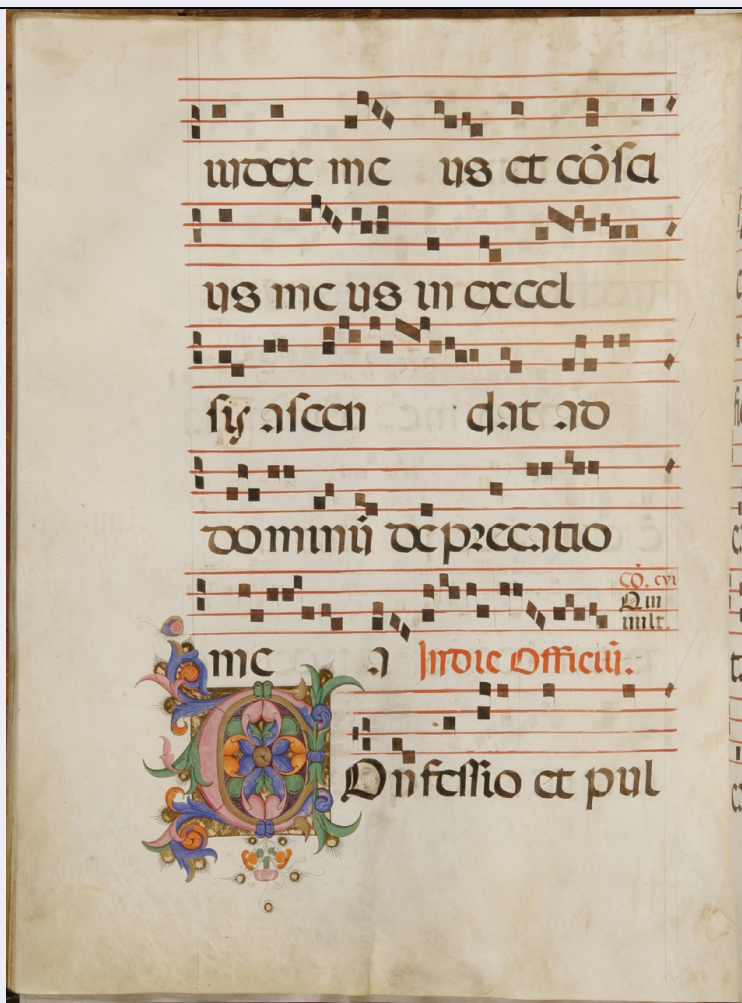 iudex me us et cōsci
us me us in excel
sis ascen dat ad
dominū deprecatio
Cō. cvi
Qui
vult.
me a In die Officiū.
COnfessio et pul